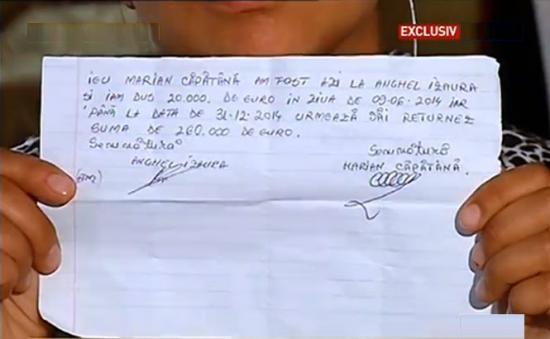 EXCLUSIV
IEU MARIAN CĂPĂTÂNĂ AM FOST AZI LA ANGHEL IZAURA
SI IAM DUS 20.000. DE EURO IN ZIUA DE 09-06-2014 IAR
PÂNĂ LA DATA DE 31-12-2014 URMEAZĂ SĂI RETURNEZ
SUMA DE 260.000 DE EURO.
Semnătura
ANGHEL IZAURA
Semnătură
MARIAN CĂPĂTÂNĂ.